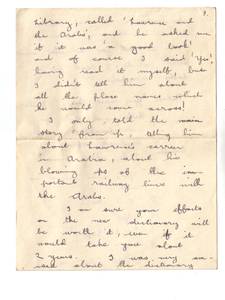 9.
library, called 'Lawrence and
the Arabs', and he asked me
if it was a good book!
and of course I said 'Yes',
having read it myself, but
I didn't tell him about
all the place names which
he would come across!
I only told the main
story from it, telling him
about Lawrence's career
in Arabia, about his
blowing ups of the im-
portant railway lines with
the Arabs.
I am sure your efforts
on the new dictionary will
be worth it, even if it
would take you about
2 years. I was my
about the dictionary